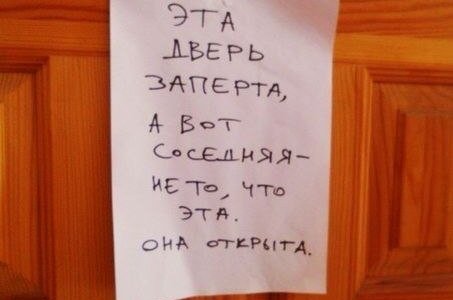 ЭТА
ДВЕРЬ
ЗАПЕРТА,
А ВОТ
СОСЕДНЯЯ-
НЕ ТО, ЧТО
ЭТА.
ОНА ОТКРЫТА.